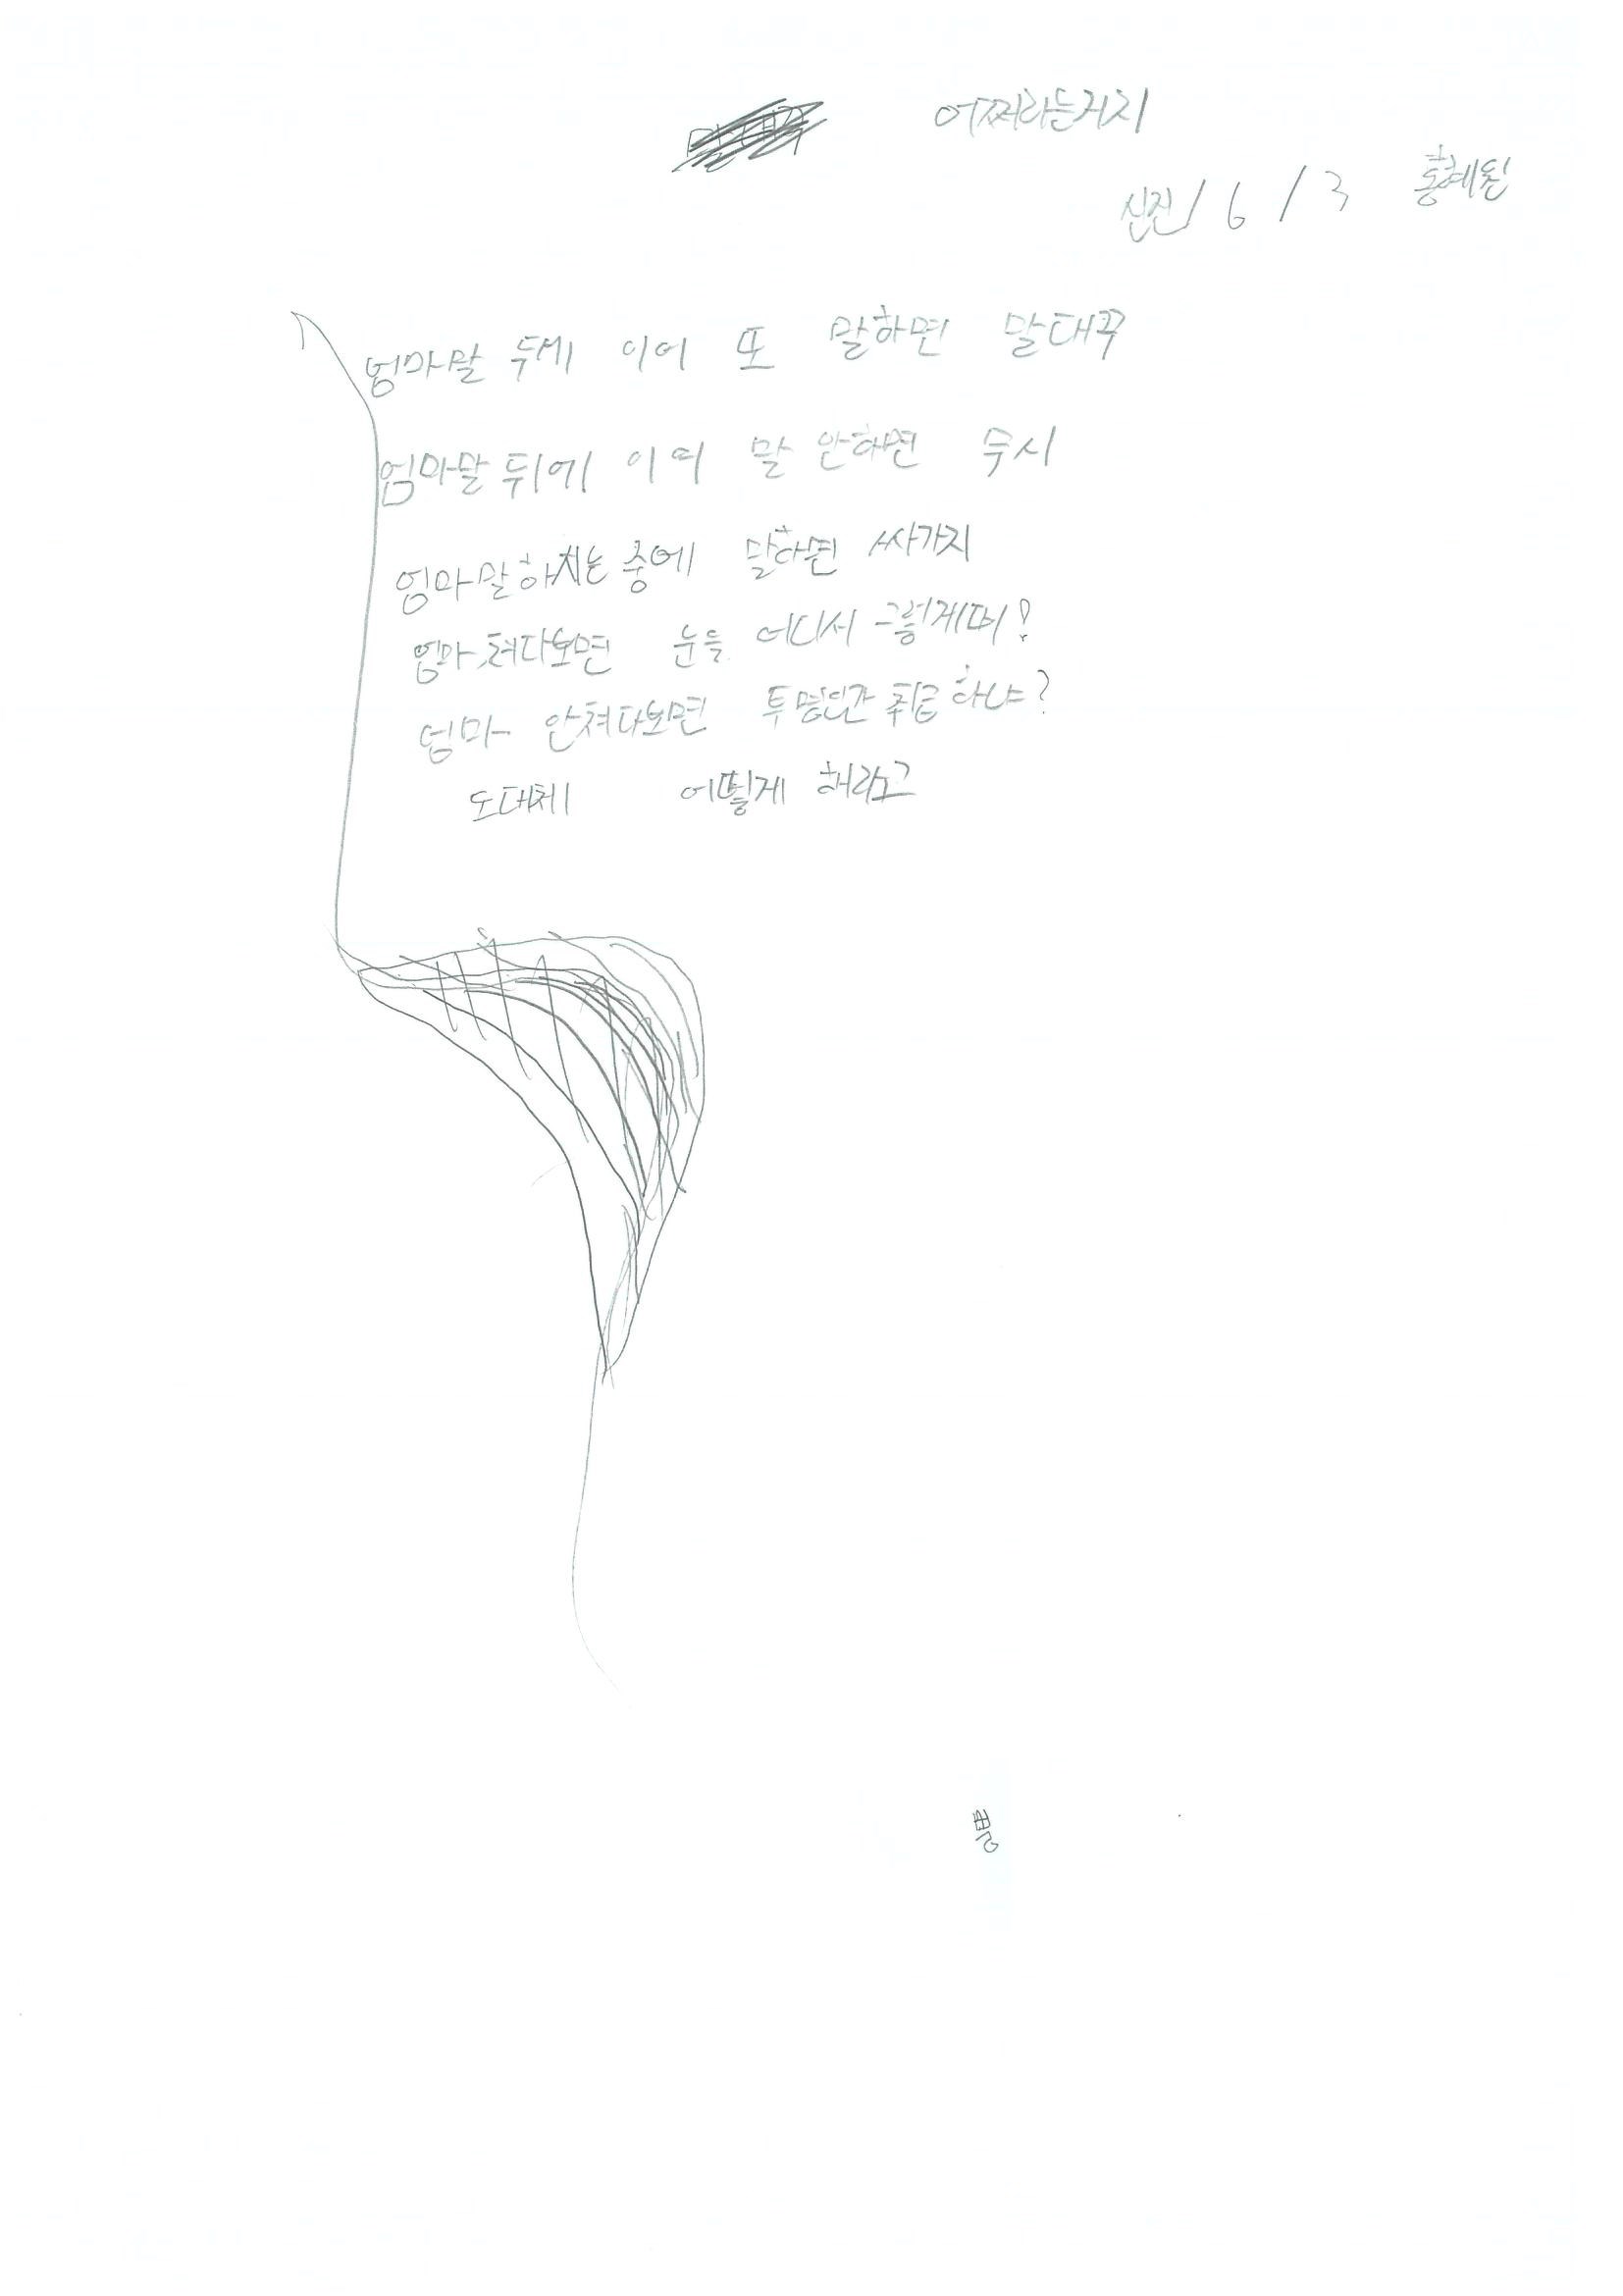 어쩌라는거지
신진/6/3 홍혜원
엄마말 두세 이어 또 말하면 말대꾸
엄마말 뒤에 이여 말 안하면 무시
엄마말하시는 중에 말하면 싸가지
엄마 쳐다보면 눈을 어디서 그렇게떠!
엄마 안쳐다보면 투명인간 취급 하냐?
도대체 어떻게 해라고
뿡